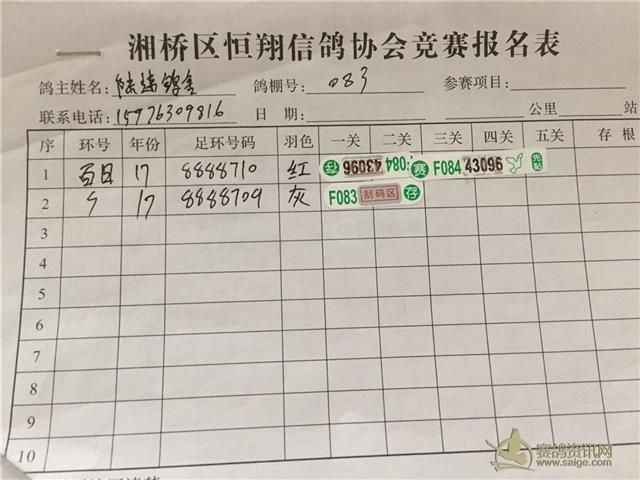 湘桥区恒翔信鸽协会竞赛报名表
鸽主姓名: 鸽舍 鸽棚号: 083 参赛项目:
联系电话: 15976309816 日 期: 公里 站
序 环号 年份 足环号码 羽色 一关 二关 三关 四关 五关 存 根
1 百日 17 8888710 红 存 43096 F084 赛 F084 43096
2 17 8888709 灰 F083 刮码区 存
3
4
5
6
7
8
9
10
赛鸽资讯网
www.saige.com